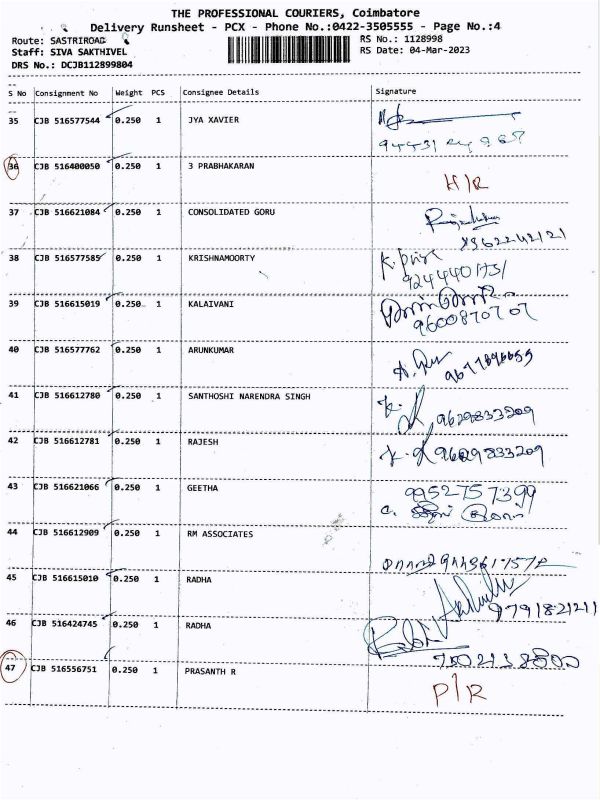 THE PROFESSIONAL COURIERS, Coimbatore
Delivery Runsheet - PCX - Phone No.:0422-3505555 - Page No.:4
Route: SASTRIROAD
RS No.: 1128998
Staff: SIVA SAKTHIVEL
RS Date: 04-Mar-2023
DRS No.: DCJB112899804
S No Consignment No Weight PCS Consignee Details Signature
35 CJB 516577544 0.250 1 JYA XAVIER
36 CJB 516400050 0.250 1 3 PRABHAKARAN
H/R
37 CJB 516621084 0.250 1 CONSOLIDATED GORU
38 CJB 516577585 0.250 1 KRISHNAMOORTY
K. Priya
39 CJB 516615019 0.250 1 KALAIVANI
9600870707
40 CJB 516577762 0.250 1 ARUNKUMAR
41 CJB 516612780 0.250 1 SANTHOSHI NARENDRA SINGH
9629833209
42 CJB 516612781 0.250 1 RAJESH
9629833209
43 CJB 516621066 0.250 1 GEETHA
9952757399
44 CJB 516612909 0.250 1 RM ASSOCIATES
45 CJB 516615010 0.250 1 RADHA
9791821211
46 CJB 516424745 0.250 1 RADHA
47 CJB 516556751 0.250 1 PRASANTH R
P/R